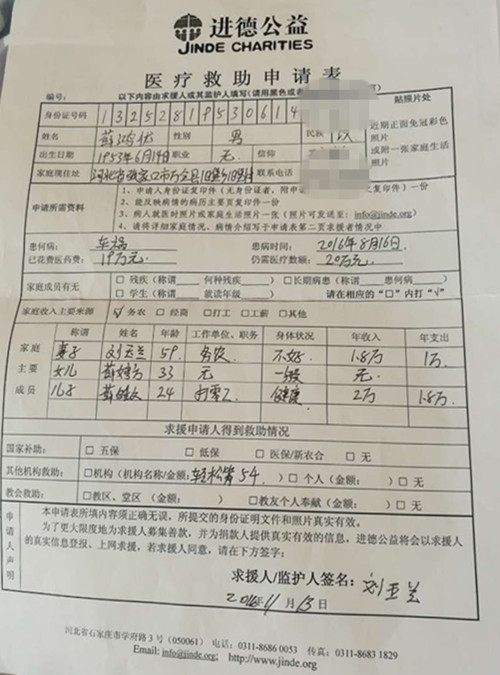 进德公益
JINDE CHARITIES
医疗救助申请表
编号： 以下内容由求援人或其监护人填写(请用黑色或者
贴照片处
身份证号码 1325281953061
姓名 性别 男 民族 汉
近期正面免冠彩色照片
或附一张家庭生活照片
出生日期 1953年6月14日 职业 无 信仰
家庭现住址 河北省张家口市万全县旧堡乡旧堡村 联系电话
申请所需资料
1、申请人身份证复印件（无身份证者，附申 复印件）
2、能反映病情的病历主要页复印件一份
3、病人就医时照片或家庭生活照片一张（照片可发送至：info@jinde.org）
4、请将详细家庭情况、病情介绍写于申请表第二页求援者情况中
患何病： 车祸 患病时间： 2016年8月16日
已花费医药费： 19万元 仍需医疗费数额： 20万元
家庭成员有无 □残疾（称谓 何种残疾 ） □长期病患（称谓 患何病 ）
□学生（称谓 就读年级 ） 请在相应的“□”内打“√”
家庭收入主要来源 √务农 □经商 □打工 □薪资 □其他
家庭主要成员
称谓 姓名 年龄 工作单位、职务 身体状况 年收入 年支出
妻子 刘玉兰 59 务农 不好 1.8万 1万
女儿 33 无 一般 无
儿子 24 打零工 健康 2万 1.8万
求援申请人得到救助情况
国家补助： □五保 □低保 □医保/新农合 □无
其他机构救助： □机构（机构名称/金额：轻松筹5千） □个人（金额： ） □无
教会救助： □教区、堂区（金额： ） □教友个人奉献（金额： ） □无
申请人声明
本申请表所填内容须正确无误，所提交的身份证明文件和照片真实有效。
为了更大限度地为求援人募集善款，并为捐款人提供真实有效的信息，进德公益将会以求援人
的真实信息登报、上网求援，若求援人同意，请在下方签字：
求援人/监护人签名： 刘玉兰
2016年11月13日
河北省石家庄市学府路3号（050061） 电话：0311-8686 0053 传真：0311-8683 1829
Email: info@jinde.org; http://www.jinde.org